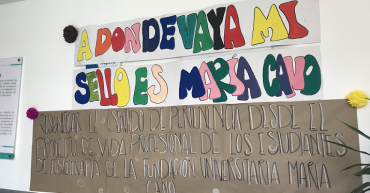 A DONDE VAYA MI
SELLO ES MARÍA CANO
EL SENTIDO DE PERTENENCIA DESDE EL
PROYECTO DE VIDA PROFESIONAL DE LOS ESTUDIANTES
DE DE LA FUNDACIÓN UNIVERSITARIA MARÍA
CANO